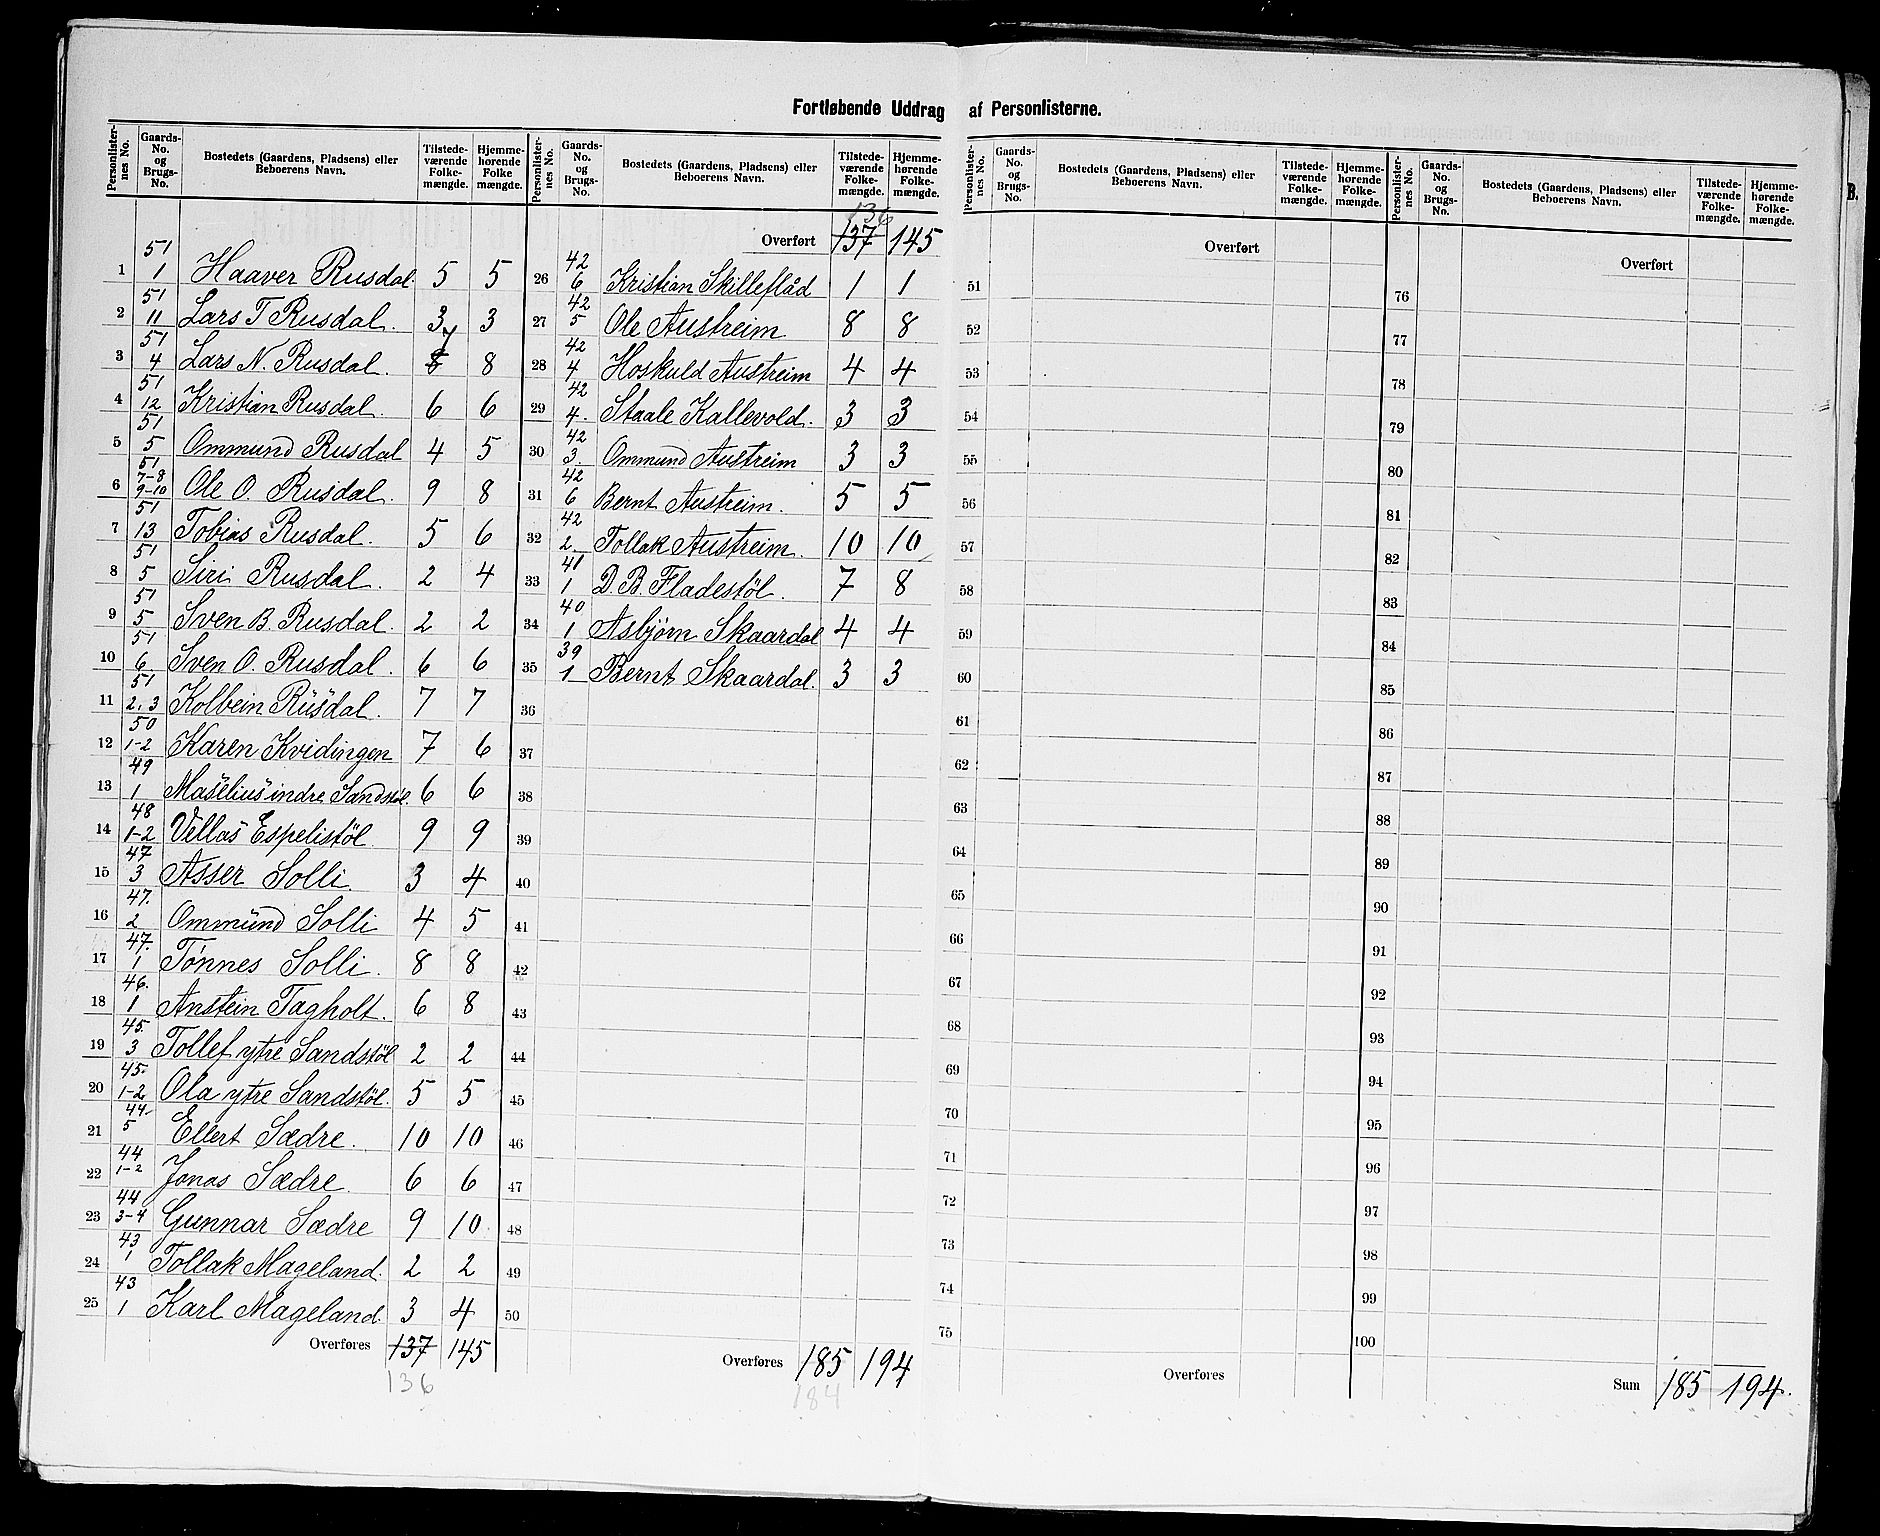 Fortløbende Uddrag af Personlisterne.
Personlisternes No. Gaards-No. og Brugs-No. Bostedets (Gaardens, Pladsens) eller Beboerens Navn. Tilstedeværende Folkemængde. Hjemmehørende Folkemængde.
1 51 1 Haaver Rusdal. 5 5
2 51 11 Lars T Rusdal. 3 3
3 51 4 Lars N. Rusdal. 8 7 8
4 51 12 Kristian Rusdal. 6 6
5 51 5 Ommund Rusdal 4 5
6 51 7-8 9-10 Ole O. Rusdal. 9 8
7 51 13 Tobias Rusdal. 5 6
8 51 5 Siri Rusdal. 2 4
9 51 5 Sven B. Rusdal. 2 2
10 51 6 Sven O. Rusdal. 6 6
11 51 2. 3 Kolbein Rusdal. 7 7
12 50 1-2 Karen Kvidingen 7 6
13 49 1 Maselius indre Sandstøl. 6 6
14 48 1-2 Vellas Espelistöl 9 9
15 47 3 Asser Solli. 3 4
16 47. 2 Ommund Solli 4 5
17 47. 1 Tønnes Solli. 8 8
18 46. 1 Anstein Tagholt. 6 8
19 45. 3 Tollef ytre Sandstøl 2 2
20 45. 1-2 Ola ytre Sandstøl. 5 5
21 44. 5 Ellert Sædre. 10 10
22 44 1-2 Jonas Sædre. 6 6
23 44 3-4 Gunnar Sædre 9 10.
24 43 1 Tollak Mageland. 2 2
25 43 1 Karl Mageland. 3 4
Overføres 137 145
136
Personlisternes No. Gaards-No. og Brugs-No. Bostedets (Gaardens, Pladsens) eller Beboerens Navn. Tilstedeværende Folkemængde. Hjemmehørende Folkemængde.
136
Overført 137 145
26 42 6 Kristian Skilleflåd 1 1
27 42 5 Ole Austreim 8 8
28 42 4 Hoskuld Austreim 4 4
29 42 4. Staale Kallevold. 3 3
30 42 3. Ommund Austreim 3 3
31 42 6 Bernt Austreim. 5 5
32 42 2. Tollak Austreim. 10 10
33 41 1 D. B. Fladestöl. 7 8
34 40 1 Asbjørn Skaardal 4 4
35 39 1 Bernt Skaardal. 3 3
36
37
38
39
40
41
42
43
44
45
46
47
48
49
50
Overføres 185 194
184
Personlisternes No. Gaards-No. og Brugs-No. Bostedets (Gaardens, Pladsens) eller Beboerens Navn. Tilstedeværende Folkemængde. Hjemmehørende Folkemængde.
Overført
51
52
53
54
55
56
57
58
59
60
61
62
63
64
65
66
67
68
69
70
71
72
73
74
75
Overføres
Personlisternes No. Gaards-No. og Brugs-No. Bostedets (Gaardens, Pladsens) eller Beboerens Navn. Tilstedeværende Folkemængde. Hjemmehørende Folkemængde.
Overført
76
77
78
79
80
81
82
83
84
85
86
87
88
89
90
91
92
93
94
95
96
97
98
99
100
Sum 185 194.
B.